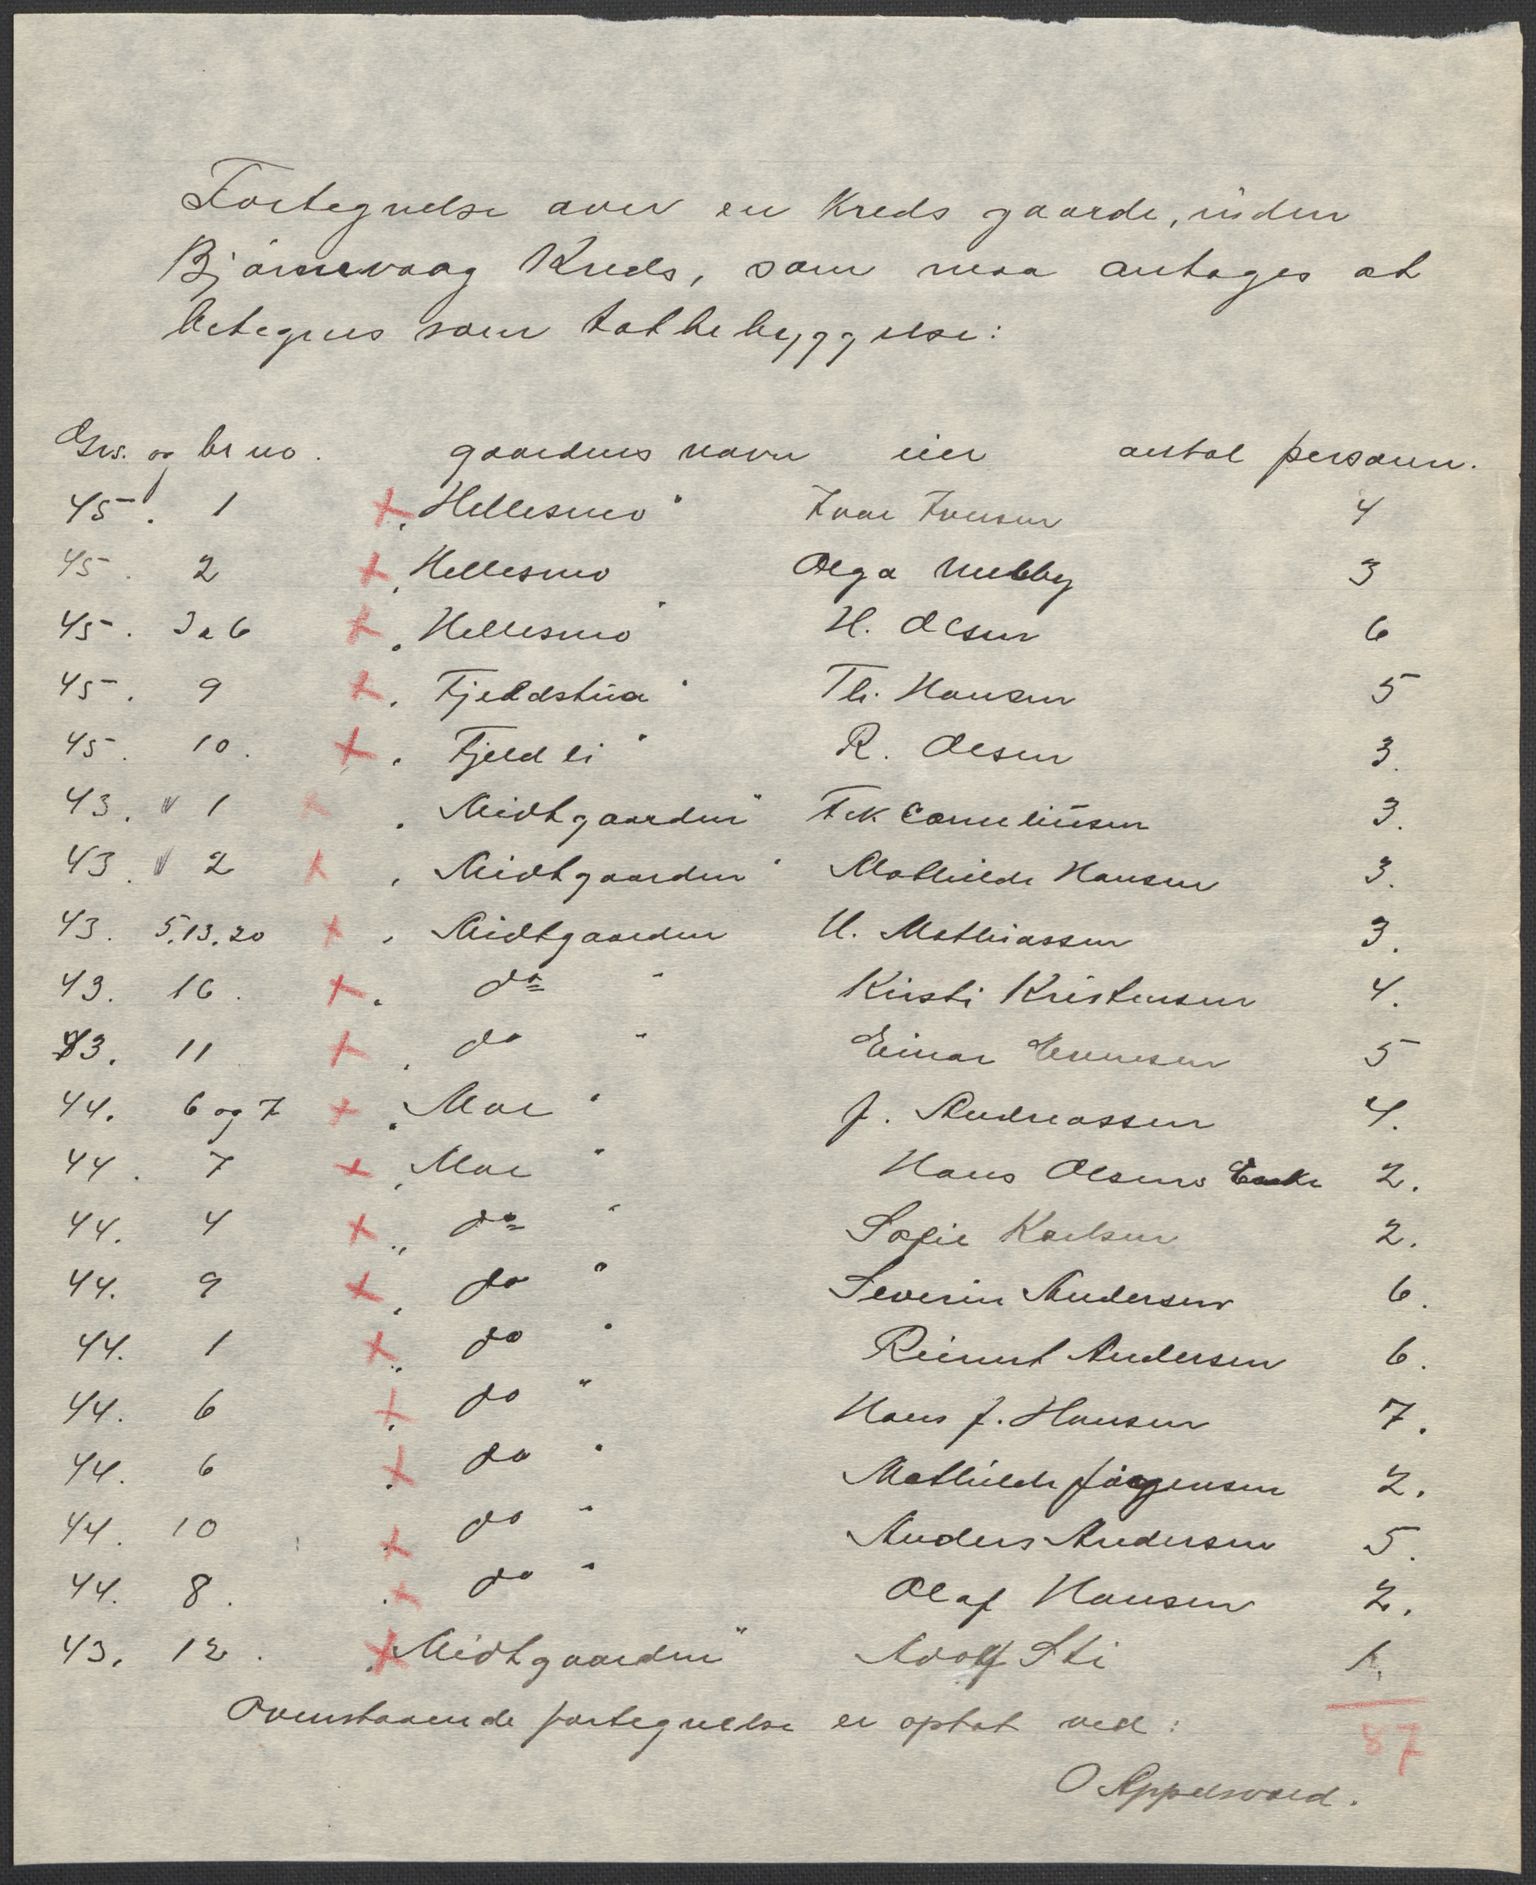 Fortegnelse over en Kreds gaarde, inden
Bjørnevaag Kreds, som maa antages at
betegnes som tætbebyggelse:
Grs. og br no. gaardens navn eier antal personer.
45. 1 + „Hellesmo“ Ivar Iversen 4
45. 2 + „Hellesmo Olga 3
45. 3 a 6 + „Hellesmo“ H. Olsen 6
45. 9 + „Fjeldstua“ Th. Hansen 5
45. 10. + „Fjeldli“ R. Olsen 3.
43. 1 + „Midtgaarden“ Fr. Corneliusen 3.
43. 2 + „Midtgaarden“ Mathilde Hansen 3.
43. 5.13.20 + „Midtgaarden M. Mathiassen 3.
43. 16. + „ do “ Kirsti Kristensen 4.
43. 11 + „ do “ Einar 5
44. 6 og 7 + „Moe“ J. Andreassen 4.
44. 7 + „Moe“ Hans Olsens Enke 2.
44. 4 + „ do “ Sofie Karlsen 2.
44. 9 + „ do “ Severin Andersen 6.
44. 1 + „ do “ Reinert Andersen 6.
44. 6 + „ do “ Hans J. Hansen 7.
44. 6 + „ do “ Mathilde Jørgensen 2.
44. 10 + „ do “ Anders Andersen 5.
44. 8. + „ do “ Olaf Hansen 2.
43. 12. + „Midtgaarden“ Adolf Sti
Ovenstaaende fortegnelse er optat ved:
87
O Appelsvold.